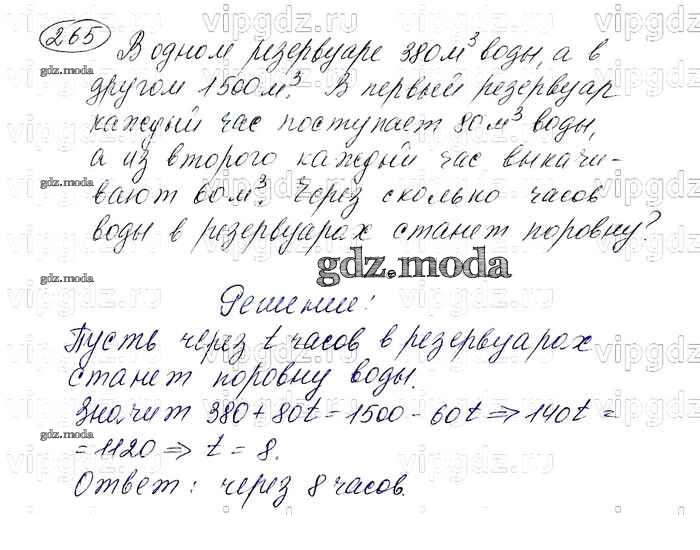 265
В одном резервуаре 380м³ воды, а в
другом 1500м³. В первый резервуар
каждый час поступает 80м³ воды,
а из второго каждый час выкачи-
вают 60м³. Через сколько часов
воды в резервуарах станет поровну?
gdz.moda
Решение:
Пусть через t часов в резервуарах
станет поровну воды.
Значит 380 + 80t = 1500 - 60t => 140t =
= 1120 => t = 8.
Ответ: через 8 часов.